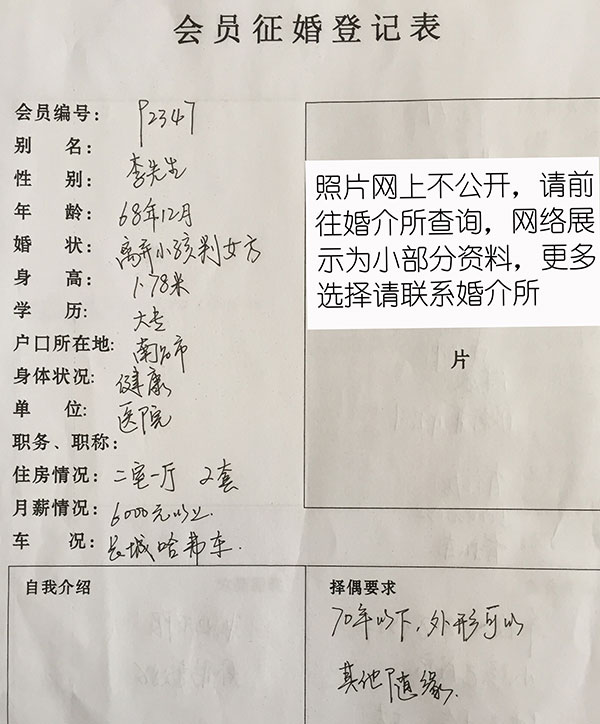 会员征婚登记表
会员编号: P2347
别 名:
性 别: 李先生
年 龄: 68年12月
婚 状: 离异小孩判女方
身 高: 1.78米
学 历: 大专
户口所在地: 南宁市
身体状况: 健康
单 位: 医院
职务、职称:
住房情况: 二室一厅 2套
月薪情况: 6000元以上.
车 况: 长城哈弗车.
照片网上不公开，请前
往婚介所查询，网络展
示为小部分资料，更多
选择请联系婚介所
片
自我介绍
择偶要求
70年以下，外形可以
其他随缘.